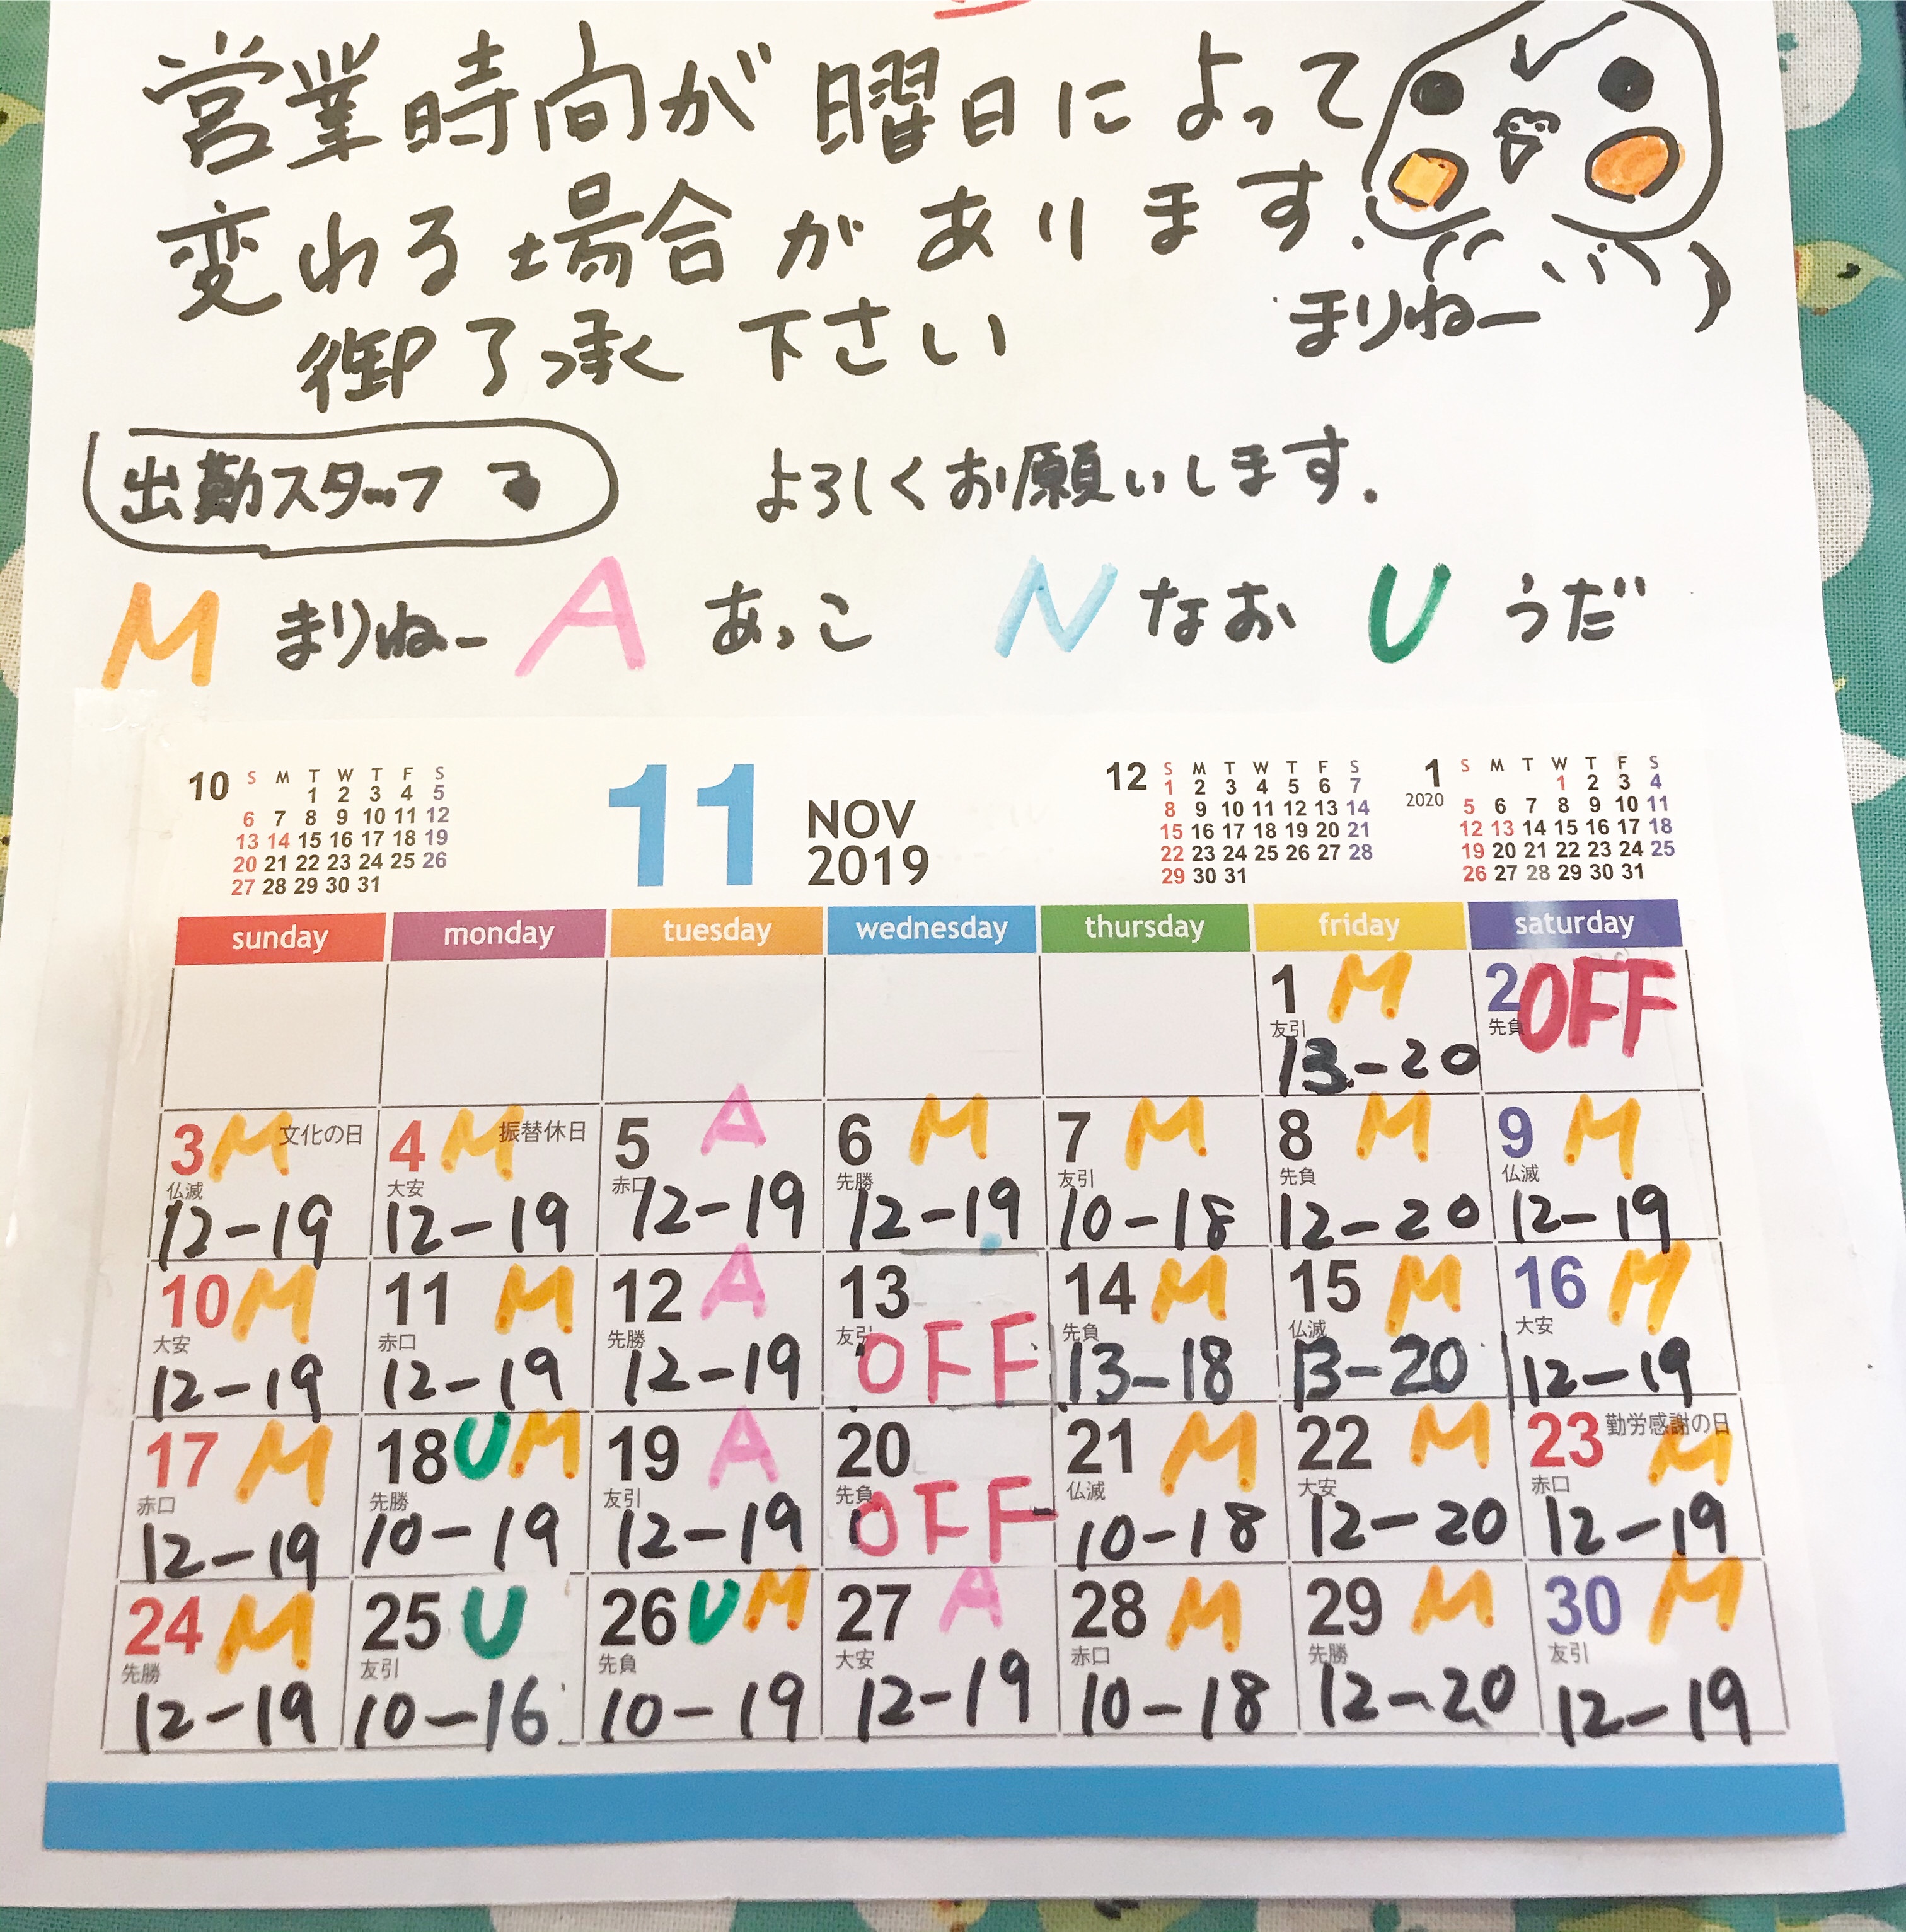 営業時間が曜日によって
変わる場合があります.
御了承下さい
まりねー
出勤スタッフ
よろしくお願いします.
M まりねー A あっこ N なお U うだ
10
S M T W T F S
1 2 3 4 5
6 7 8 9 10 11 12
13 14 15 16 17 18 19
20 21 22 23 24 25 26
27 28 29 30 31
11 NOV
2019
12
S M T W T F S
1 2 3 4 5 6 7
8 9 10 11 12 13 14
15 16 17 18 19 20 21
22 23 24 25 26 27 28
29 30 31
1
2020
S M T W T F S
1 2 3 4
5 6 7 8 9 10 11
12 13 14 15 16 17 18
19 20 21 22 23 24 25
26 27 28 29 30 31
sunday monday tuesday wednesday thursday friday saturday
1 M 2 OFF
友引 先負
13-20
3 M 文化の日 4 M 振替休日 5 A 6 M 7 M 8 M 9 M
仏滅 大安 赤口 先勝 友引 先負 仏滅
12-19 12-19 12-19 12-19 10-18 12-20 12-19
10 M 11 M 12 A 13 14 M 15 M 16 M
大安 赤口 先勝 友引 先負 仏滅 大安
12-19 12-19 12-19 OFF 13-18 13-20 12-19
17 M 18 U M 19 A 20 21 M 22 M 23 勤労感謝の日 M
赤口 先勝 友引 先負 仏滅 大安 赤口
12-19 10-19 12-19 OFF 10-18 12-20 12-19
24 M 25 U 26 U M 27 A 28 M 29 M 30 M
先勝 友引 先負 大安 赤口 先勝 友引
12-19 10-16 10-19 12-19 10-18 12-20 12-19